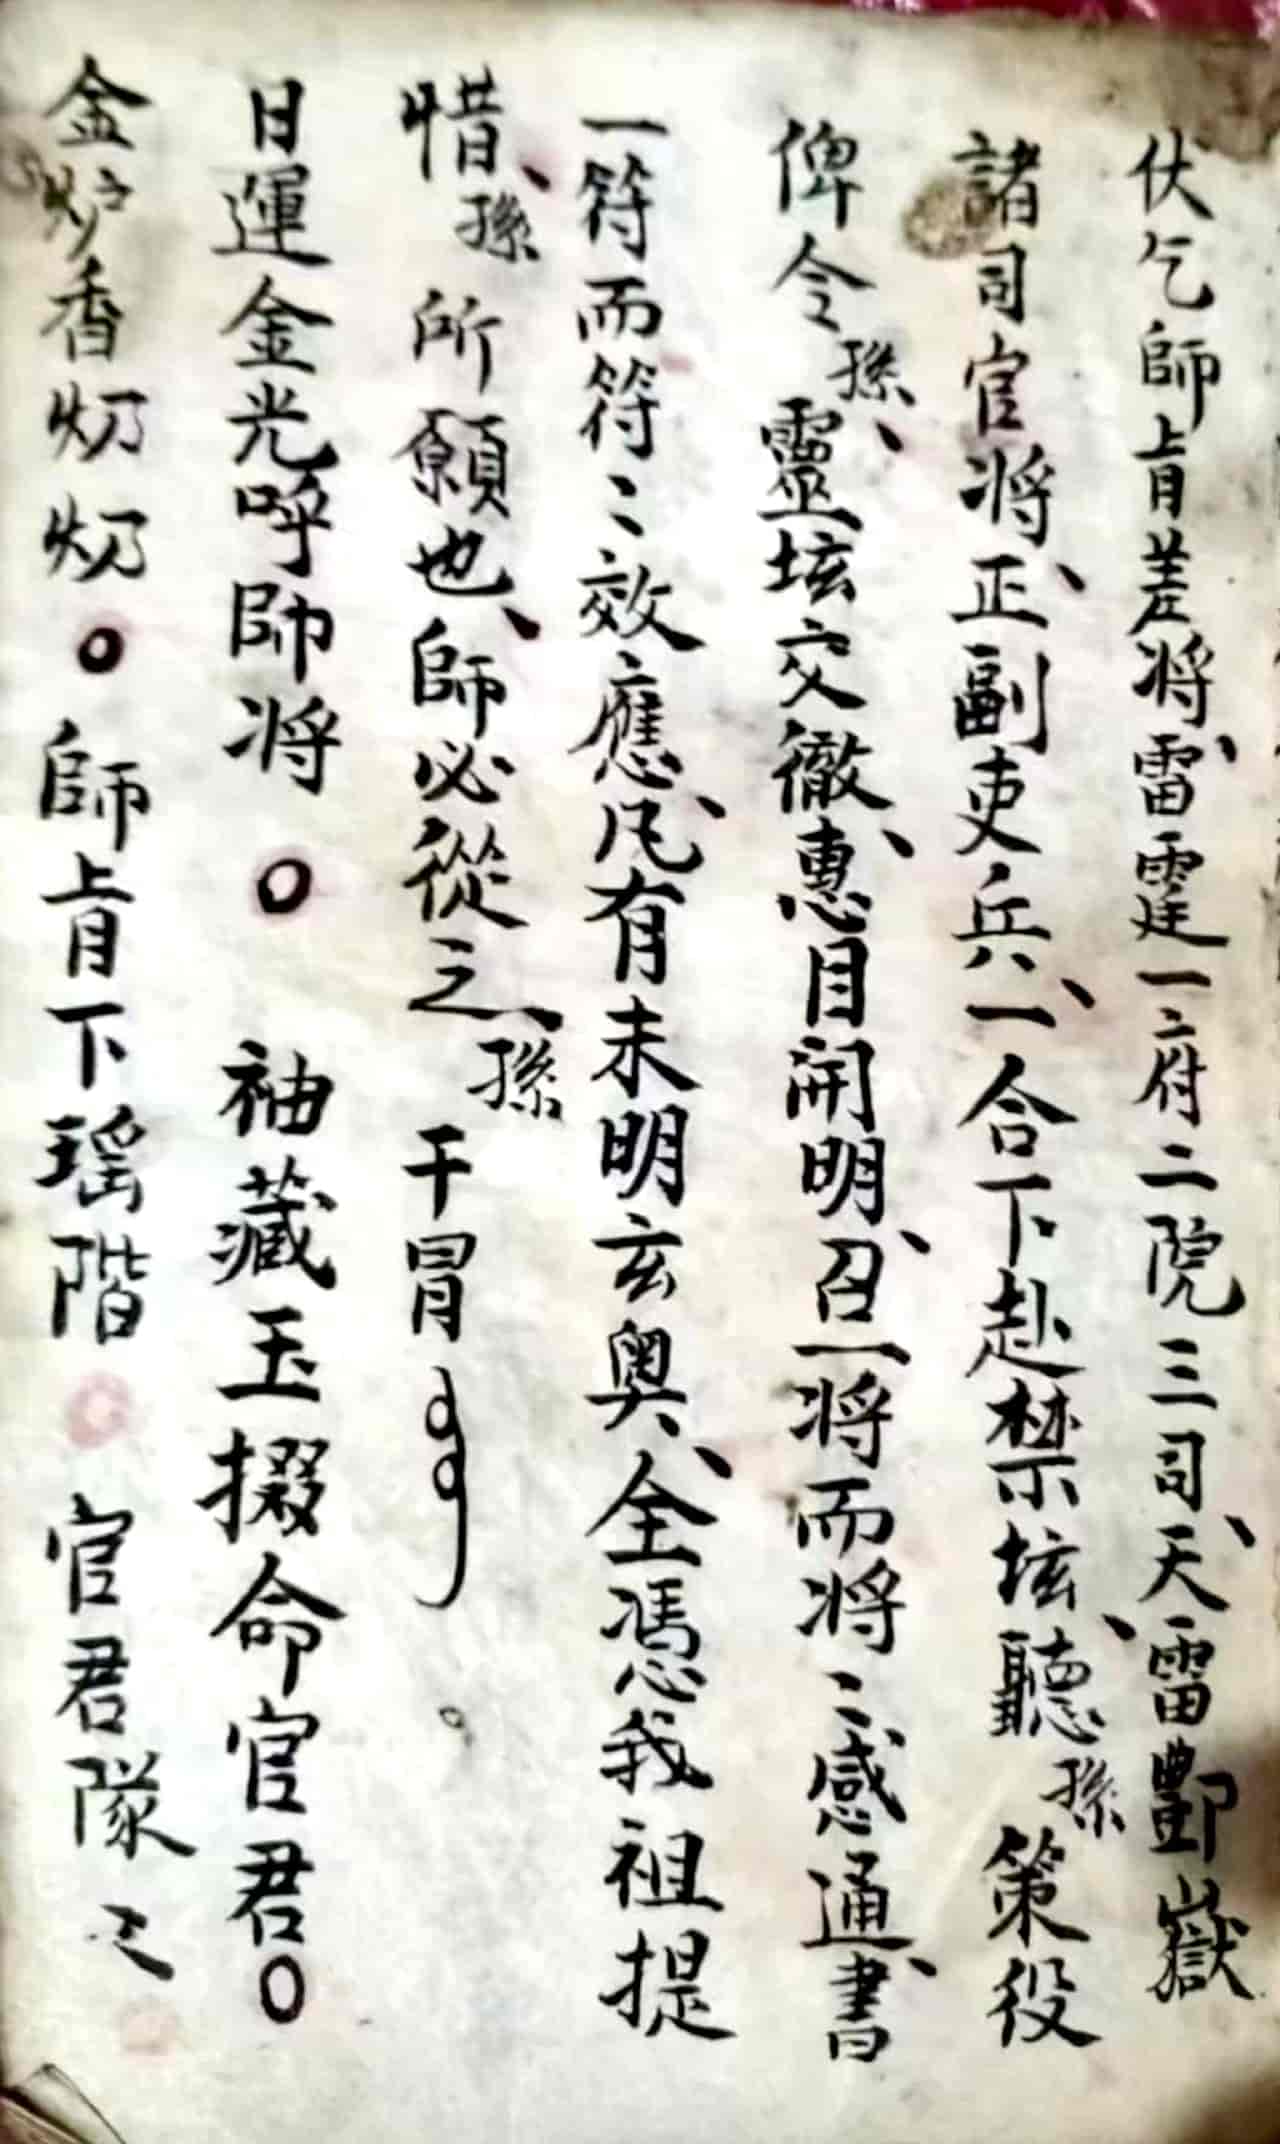 伏乞師肯差将、雷霆一府二院三司、天雷酆嶽
諸司官将、正副吏兵、一合下赴禁坛、聽孫策役
俾令孫、靈坛交徹、惠目開明、召一将而将〻感通、書
一符而符〻效應、凡有未明玄奥、全憑我祖提
惜、孫所願也、師必從之、孫干冒
日運金光呼帥将○袖藏玉掇命官君○
金炉香炏炏○師肯下瑶階○官君隊〻